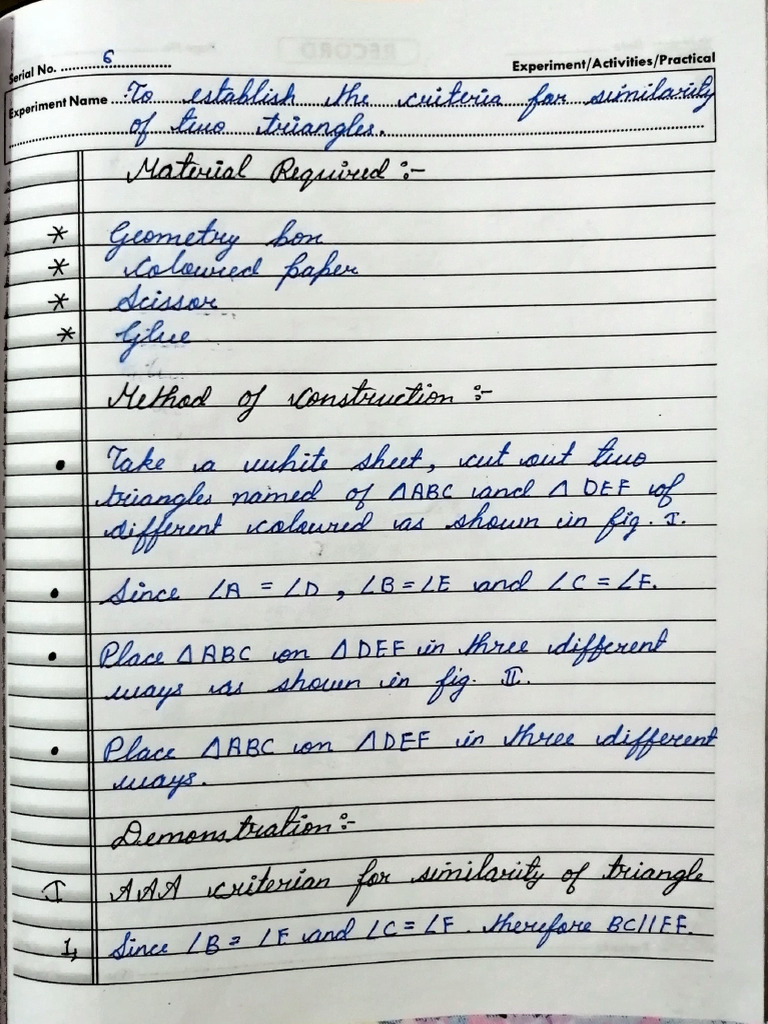 Serial No. ........6............
Experiment/Activities/Practical
Experiment Name ...To establish the criteria for similarity
of two triangles.
Material Required :-
* Geometry box
* Coloured paper
* Scissor
* Glue
Method of construction :-
• Take a white sheet, cut out two
triangles named of △ABC and △ DEF of
different coloured as shown in fig. I.
• Since ∠A = ∠D , ∠B = ∠E and ∠C = ∠F.
• Place △ABC on △DEF in three different
ways as shown in fig. II.
• Place △ABC on △DEF in three different
ways.
Demonstration:-
I AAA criterian for similarity of triangle
1, Since ∠B = ∠E and ∠C = ∠F . therefore BC||EF.